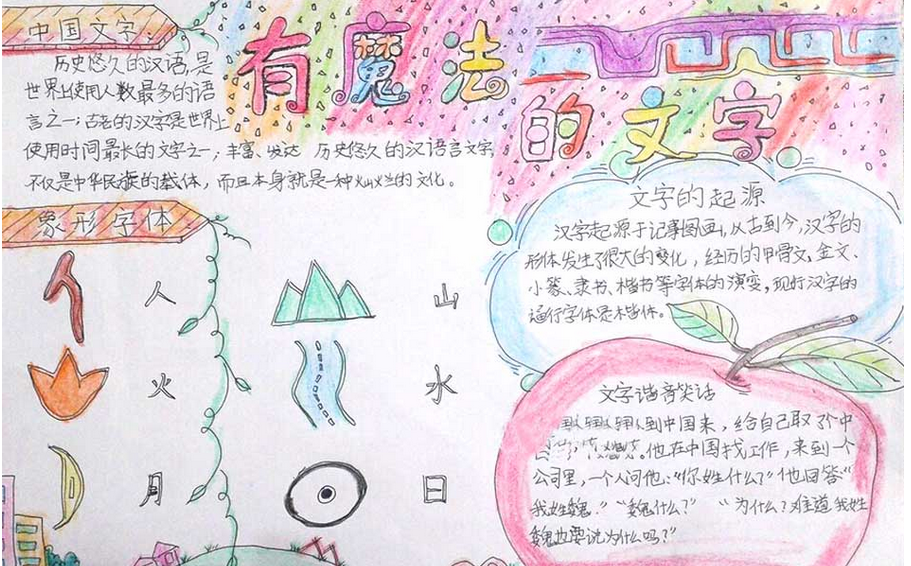 中国文字:
历史悠久的汉语,是
世界上使用人数最多的语
言之一;古老的汉字是世界上
使用时间最长的文字之一;丰富、发达 历史悠久的汉语言文字,
不仅是中华民族的载体,而且本身就是一种灿烂的文化。
有魔法
的文字
象形字体
人
山
火
水
月
日
文字的起源
汉字起源于记事图画,从古到今,汉字的
形体发生了很大的变化,经历的甲骨文,金文、
小篆、隶书、楷书等字体的演变,现行汉字的
通行字体是楷体。
文字谐音笑话
到中国来,给自己取了个中
他在中国找工作,来到一个
公司里,一个人问他:“你姓什么?”他回答“
我姓魏.” “魏什么?” “为什么?难道我姓
魏也要说为什么吗?”